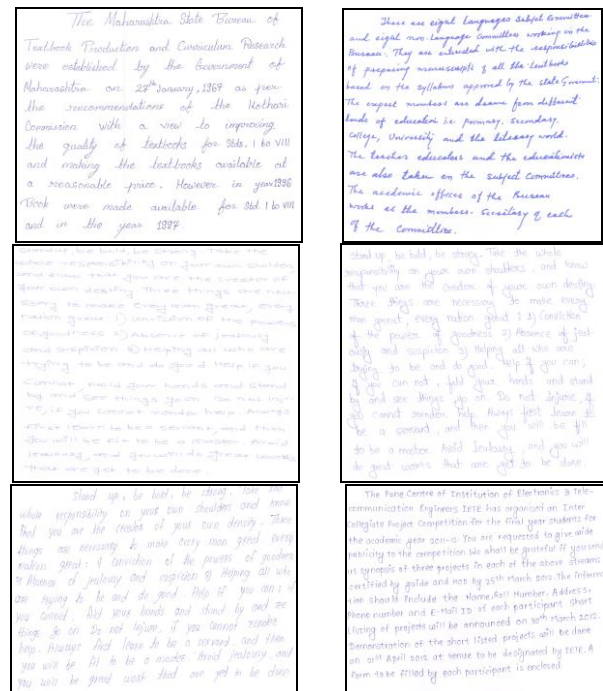 The Maharashtra State Bureau of
Textbook Production and Curriculum Research
were established by the Government of
Maharashtra on 27th January, 1967 as per
the reecommendations of the Kothari
Commission with a view to improving
the quality of textbooks for Stds. I to VIII
and making the textbooks available at
a reasonable price. However in year 1996
Book were made available for Std. I to VIII
and in the year 1997
There are eight Languages Subject Committees
and eight non Language Committees working in the
Bureau. They are intended with the responsibilities
of preparing manuscripts of all the textbooks
based on the syllabus approved by the state Government.
The expert members are drawn from different
kinds of education i.e primary, Secondary,
College, University and the literary world.
The teacher educators and the educationists
are also taken on the Subject Committees.
The academic officer of the Bureau
works as the members. Secretary of each
of the Committee.
stand up, be bold, be strong. Take the
whole responsibility on your own shoulders
and know that you are the creator of
your own destiny Three things are nece-
ssary to make every man great, every
nation great 1) Conviction of the powers
of goodness 2) Absent of jealousy
and suspicion 3) Helping all who are
trying to be and do good Help if you
cannot, fold your hands and stand
by and see things go on Do not inju-
re, if you cannot render help. Always
first learn to be a servant, and then
you will be fit to be a master. Avoid
jealousy, and you will do great works
that are yet to be done.
stand up, be bold, be strong. Take the whole
responsibility on your own shoulders, and know
that you are the creator of your own destiny.
Three things are necessary to make every
man great, every nation great : 1) Conviction
of the powers of goodness 2) Absence of jeal-
ousy and suspicion 3) Helping all who are
trying to be and do good. Help if you can;
if you can not, fold your hands and stand
by and see things go on. Do not injure, if
you cannot render help. Always first learn to
be a servant, and then you will be fit
to be a master. Avoid Jealousy, and you will
do great works that are yet to be done.
Stand up, be bold, be strong. Take the
whole responsibility on your own shoulders and know
that you are the creator of your own density. Three
things are necessary to make every man great every
nation great : 1) Conviction of the powers of goodness
2) Absence of jealousy and suspicion 3) Helping all who
are trying to be and do good. Help if you can; if
you cannot, fold your hands and stand by and see
things go on Do not injure, if you cannot render
help. Always first lease to be a servant, and then
you will be fit to be a master. Avoid jealousy, and
you will be great work that are yet to be done.
The Pune Centre of Institution of Electronics & Tele-
communication Engineers IETE has organised an Inter
Collegiate Project Competition for the final year students for
the academic year 2011-12. You are requested to give wide
publicity to the competition We shall be grateful if you send
in synopsis of three projects in each of the above streams
certified by guide and HOD by 25th March 2012. The informa-
tion should include the Name, Roll Number, Address,
Phone number and E-Mail ID of each participant Short
Listing of projects will be announced on 30th March 2012.
Demonstration of the short listed projects will be done
on 21st April 2012 at venue to be designated by IETE. A
form to be filled by each participant is enclosed.